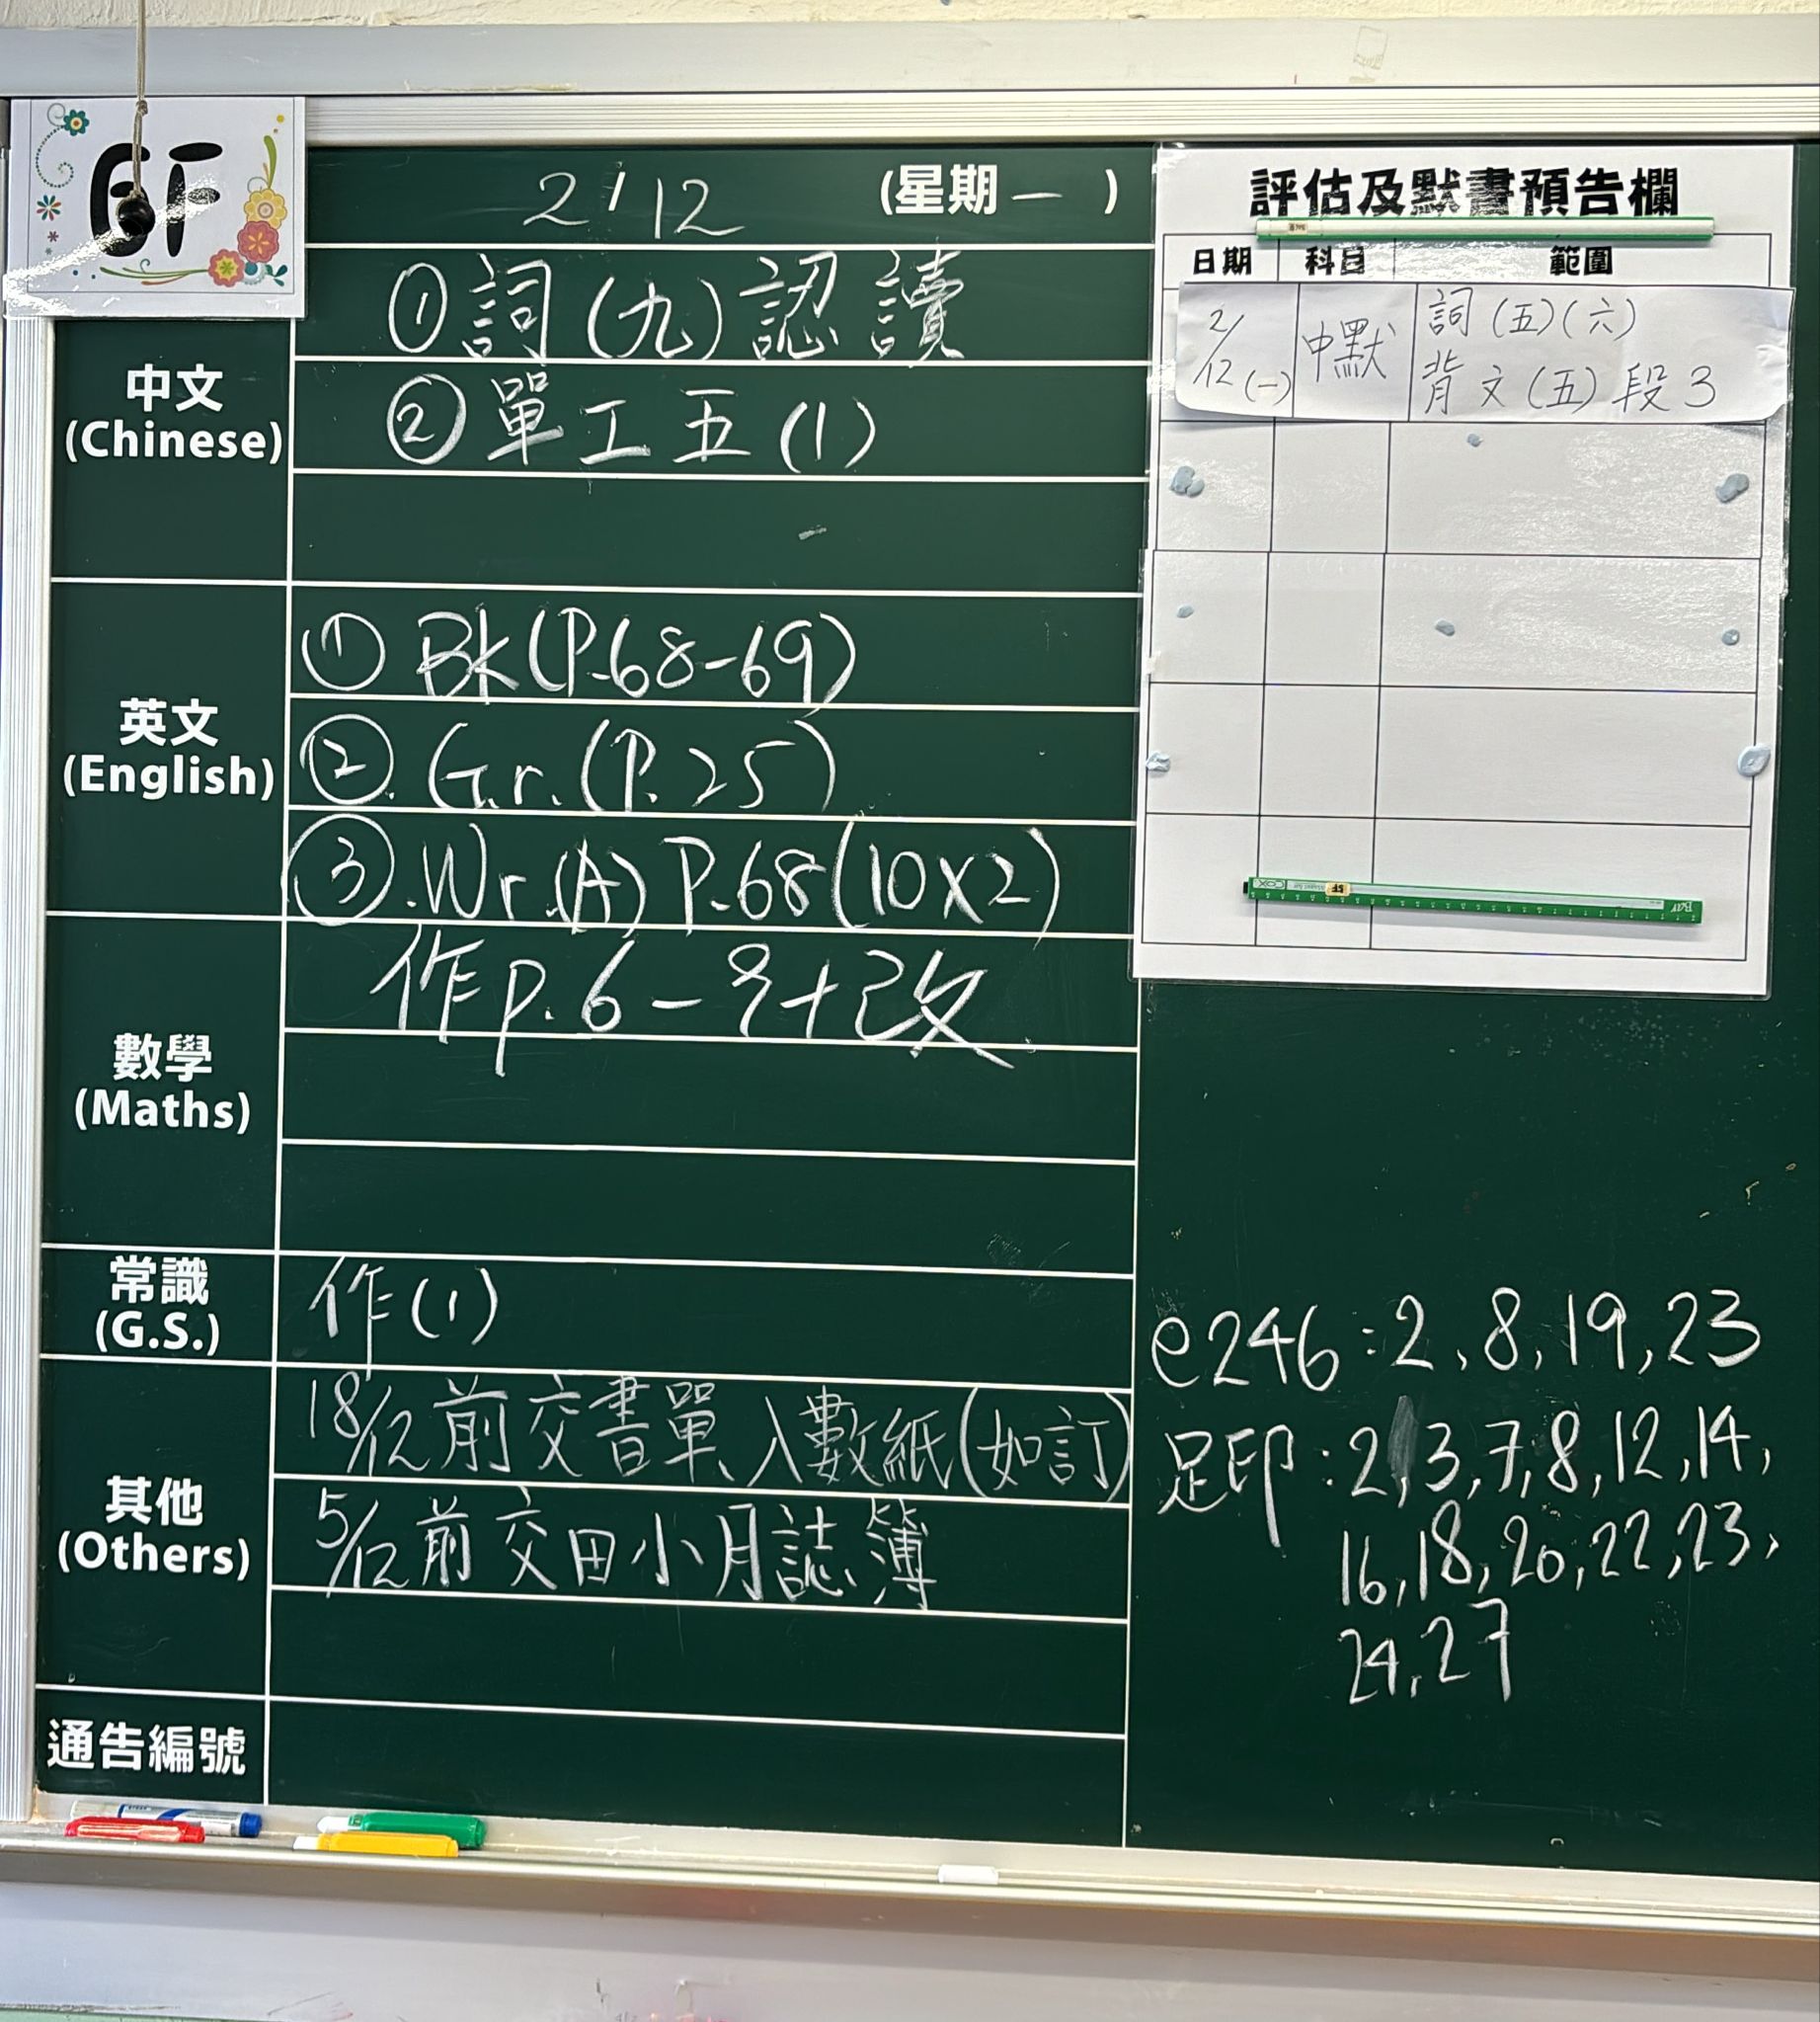 2/12 (星期一)
中文
(Chinese)
①詞(九)認讀
②單工五(1)
英文
(English)
① Bk(P.68-69)
②. Gr.(P.25)
③.Wr.(A) P.68(10x2)
數學
(Maths)
作p.6-8+改
常識
(G.S.)
作(1)
其他
(Others)
18/12前交書單、入數紙(如訂)
5/12前交田小月誌簿
通告編號
評估及默書預告欄
日期 科目 範圍
2/12(一) 中默 詞(五)(六)
背文(五)段3
e246:2,8,19,23
足印:2,3,7,8,12,14,
16,18,20,22,23,
24,27